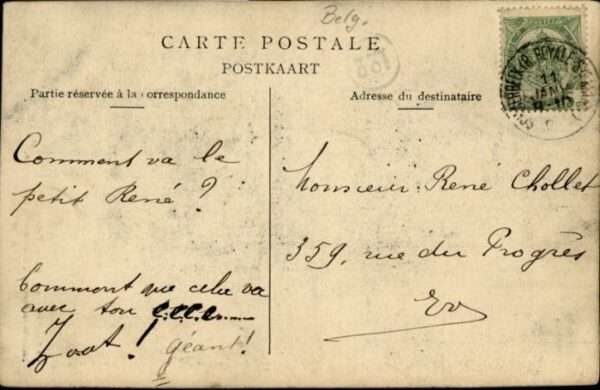 Belg.
CARTE POSTALE
POSTKAART
Partie réservée à la correspondance
Adresse du destinataire
11
JANV
Comment va le
petit René ?
Comment que cela va
avec ton
Zoot! géant!
Monsieur René Chollet
359, rue du Progrès